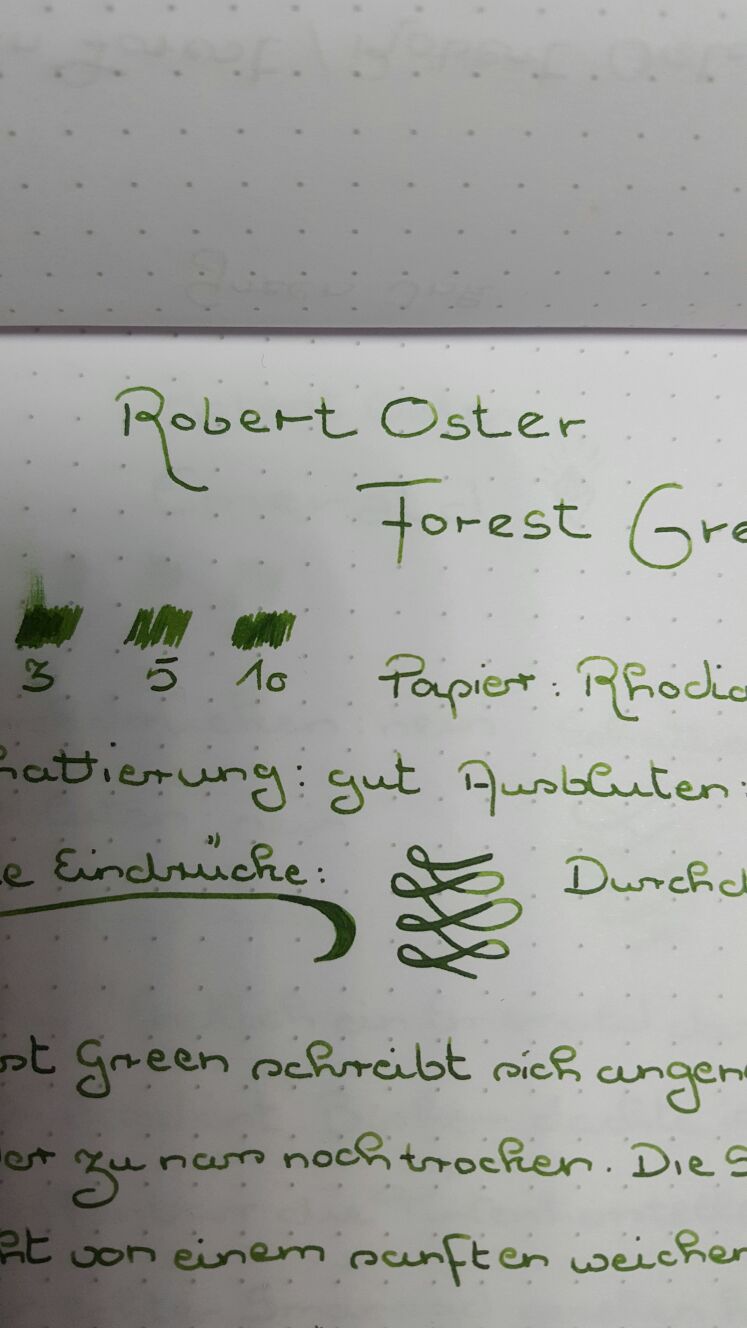 Robert Oster
Forest Gre
3 5 10
Papier: Rhodia
hattierung: gut Ausbluten:
e Eindrücke: Durchd
st Green schreibt sich angen
er zu nass noch trocken. Die S
ht von einem sanften weichen